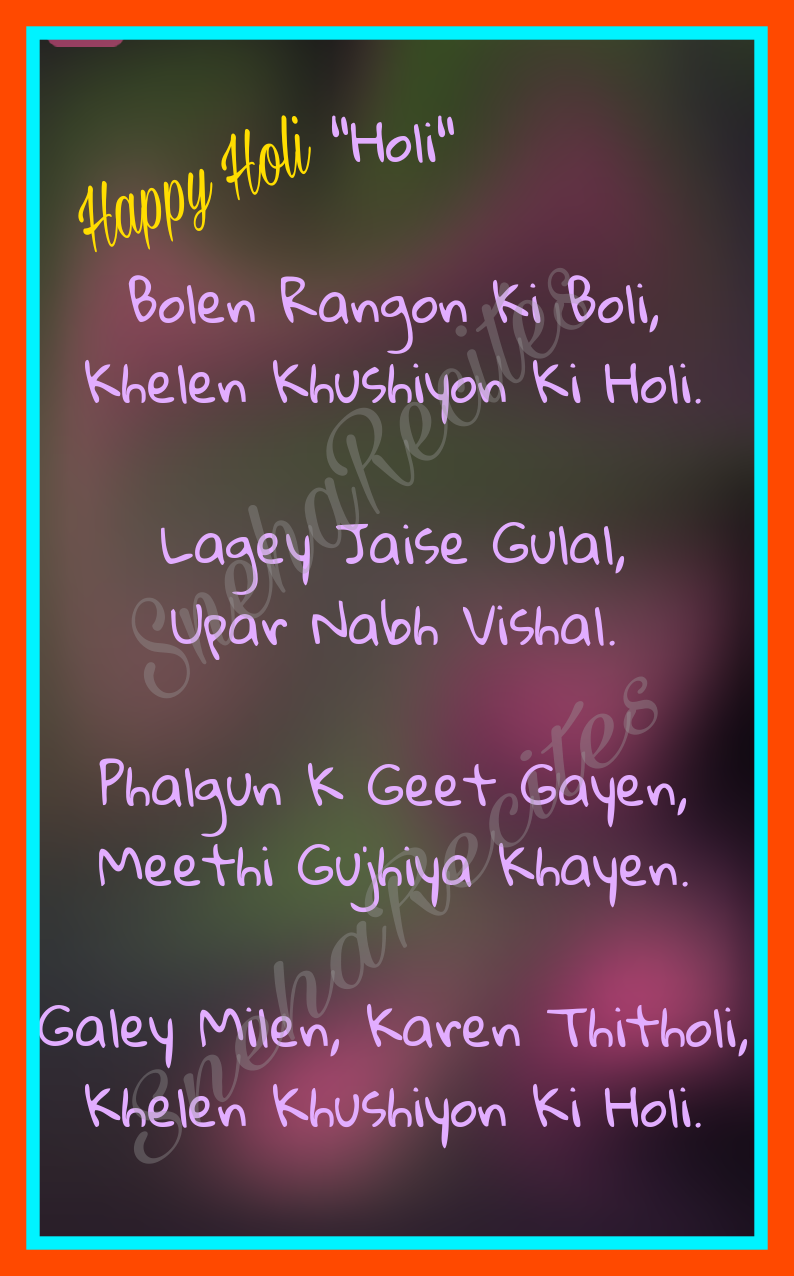 Happy Holi "Holi"
Bolen Rangon Ki Boli,
Khelen Khushiyon Ki Holi.
Lagey Jaise Gulal,
Upar Nabh Vishal.
Phalgun K Geet Gayen,
Meethi Gujhiya Khayen.
Galey Milen, Karen Thitholi,
Khelen Khushiyon Ki Holi.
SnehaRecites
SnehaRecites